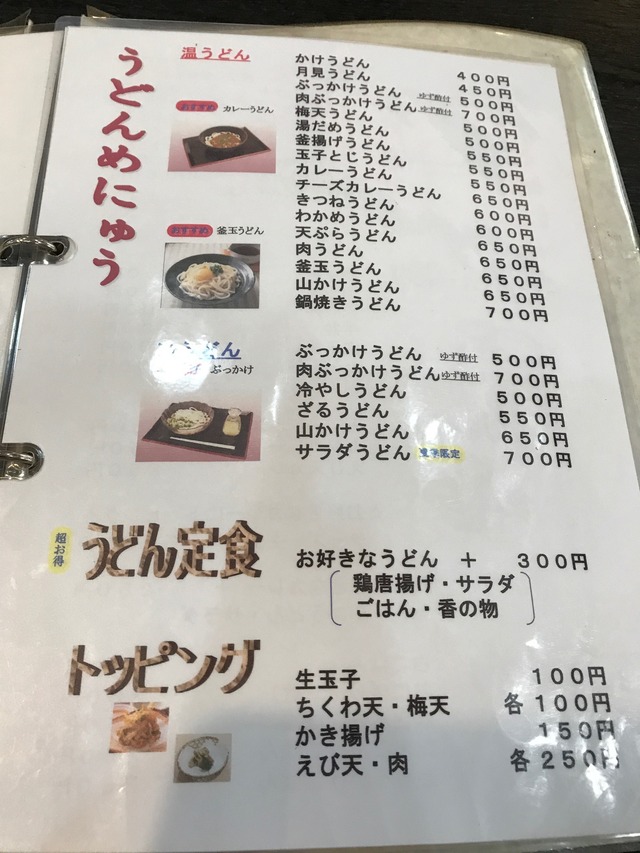 うどんめにゅう
温うどん
おすすめ カレーうどん
おすすめ 釜玉うどん
かけうどん 400円
月見うどん 450円
ぶっかけうどん ゆず酢付 500円
肉ぶっかけうどん ゆず酢付 700円
梅天うどん 500円
湯だめうどん 500円
釜揚げうどん 550円
玉子とじうどん 550円
カレーうどん 550円
チーズカレーうどん 650円
きつねうどん 600円
わかめうどん 600円
天ぷらうどん 650円
肉うどん 650円
釜玉うどん 650円
山かけうどん 650円
鍋焼きうどん 700円
うどん
ぶっかけ
ぶっかけうどん ゆず酢付 500円
肉ぶっかけうどん ゆず酢付 700円
冷やしうどん 500円
ざるうどん 550円
山かけうどん 650円
サラダうどん 夏季限定 700円
超お得
うどん定食
お好きなうどん ＋ 300円
鶏唐揚げ・サラダ
ごはん・香の物
トッピング
生玉子 100円
ちくわ天・梅天 各100円
かき揚げ 150円
えび天・肉 各250円